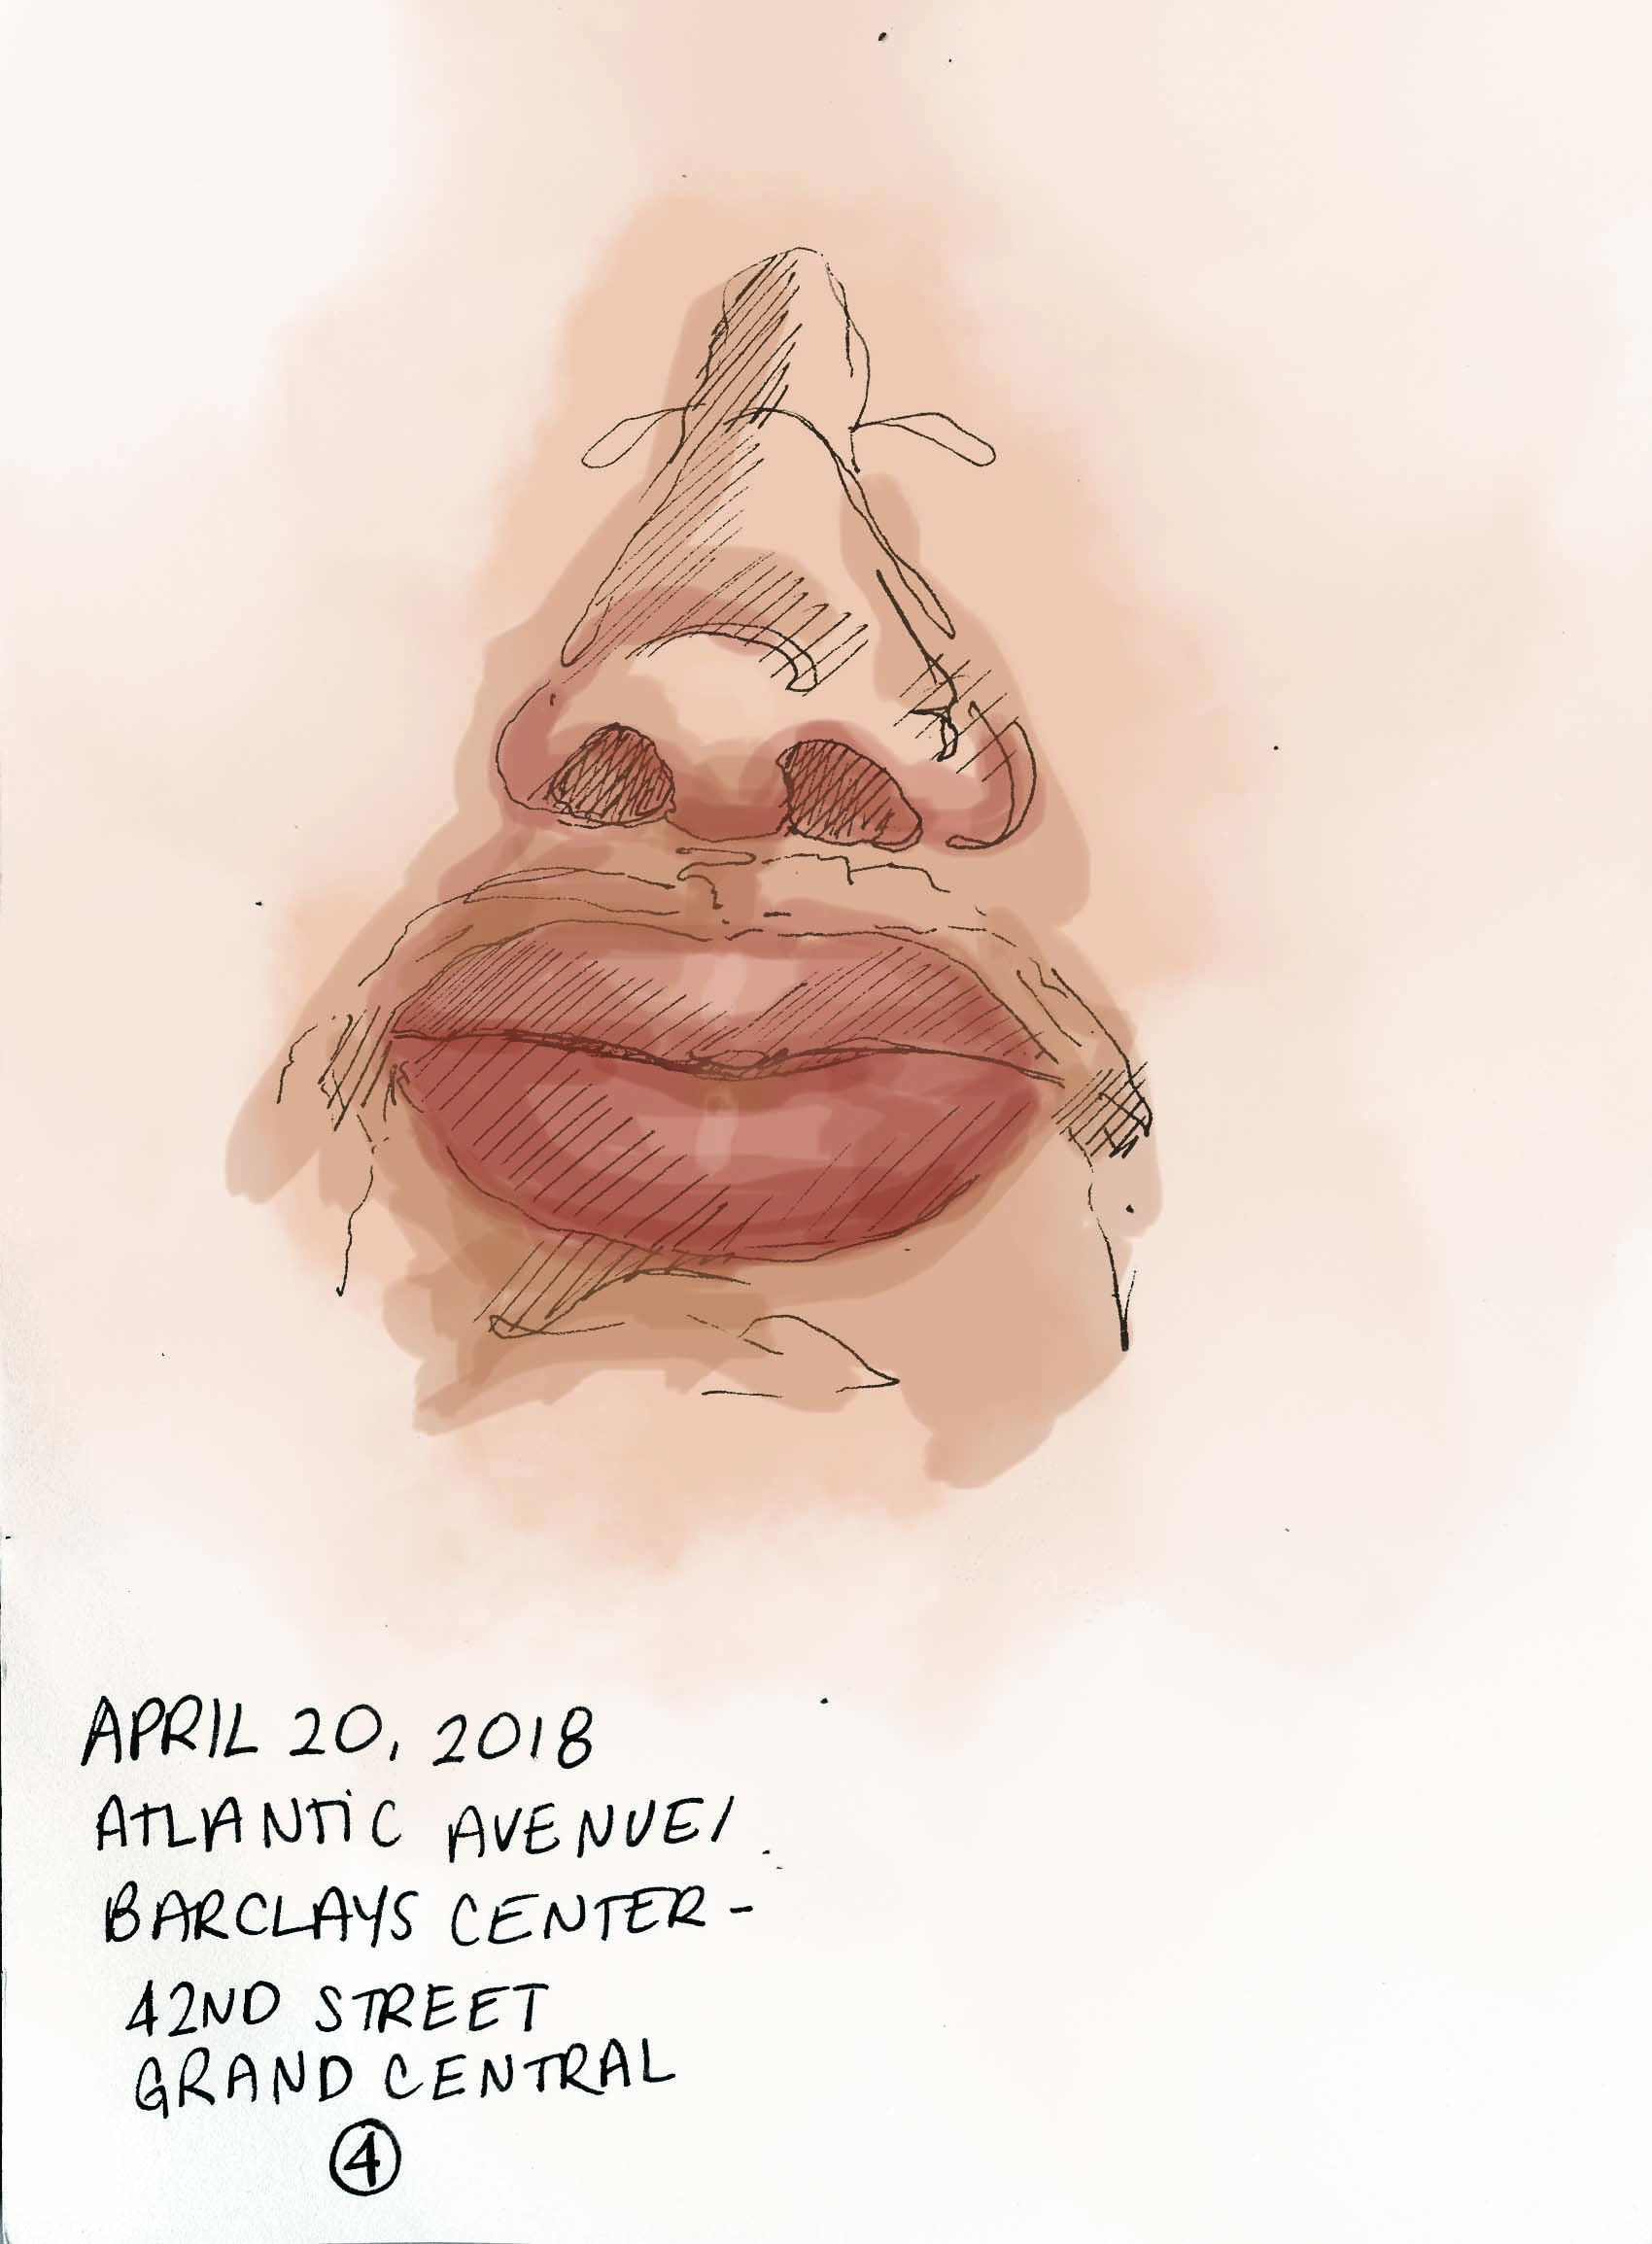 APRIL 20, 2018
ATLANTIC AVENUE/
BARCLAYS CENTER-
42ND STREET
GRAND CENTRAL
4